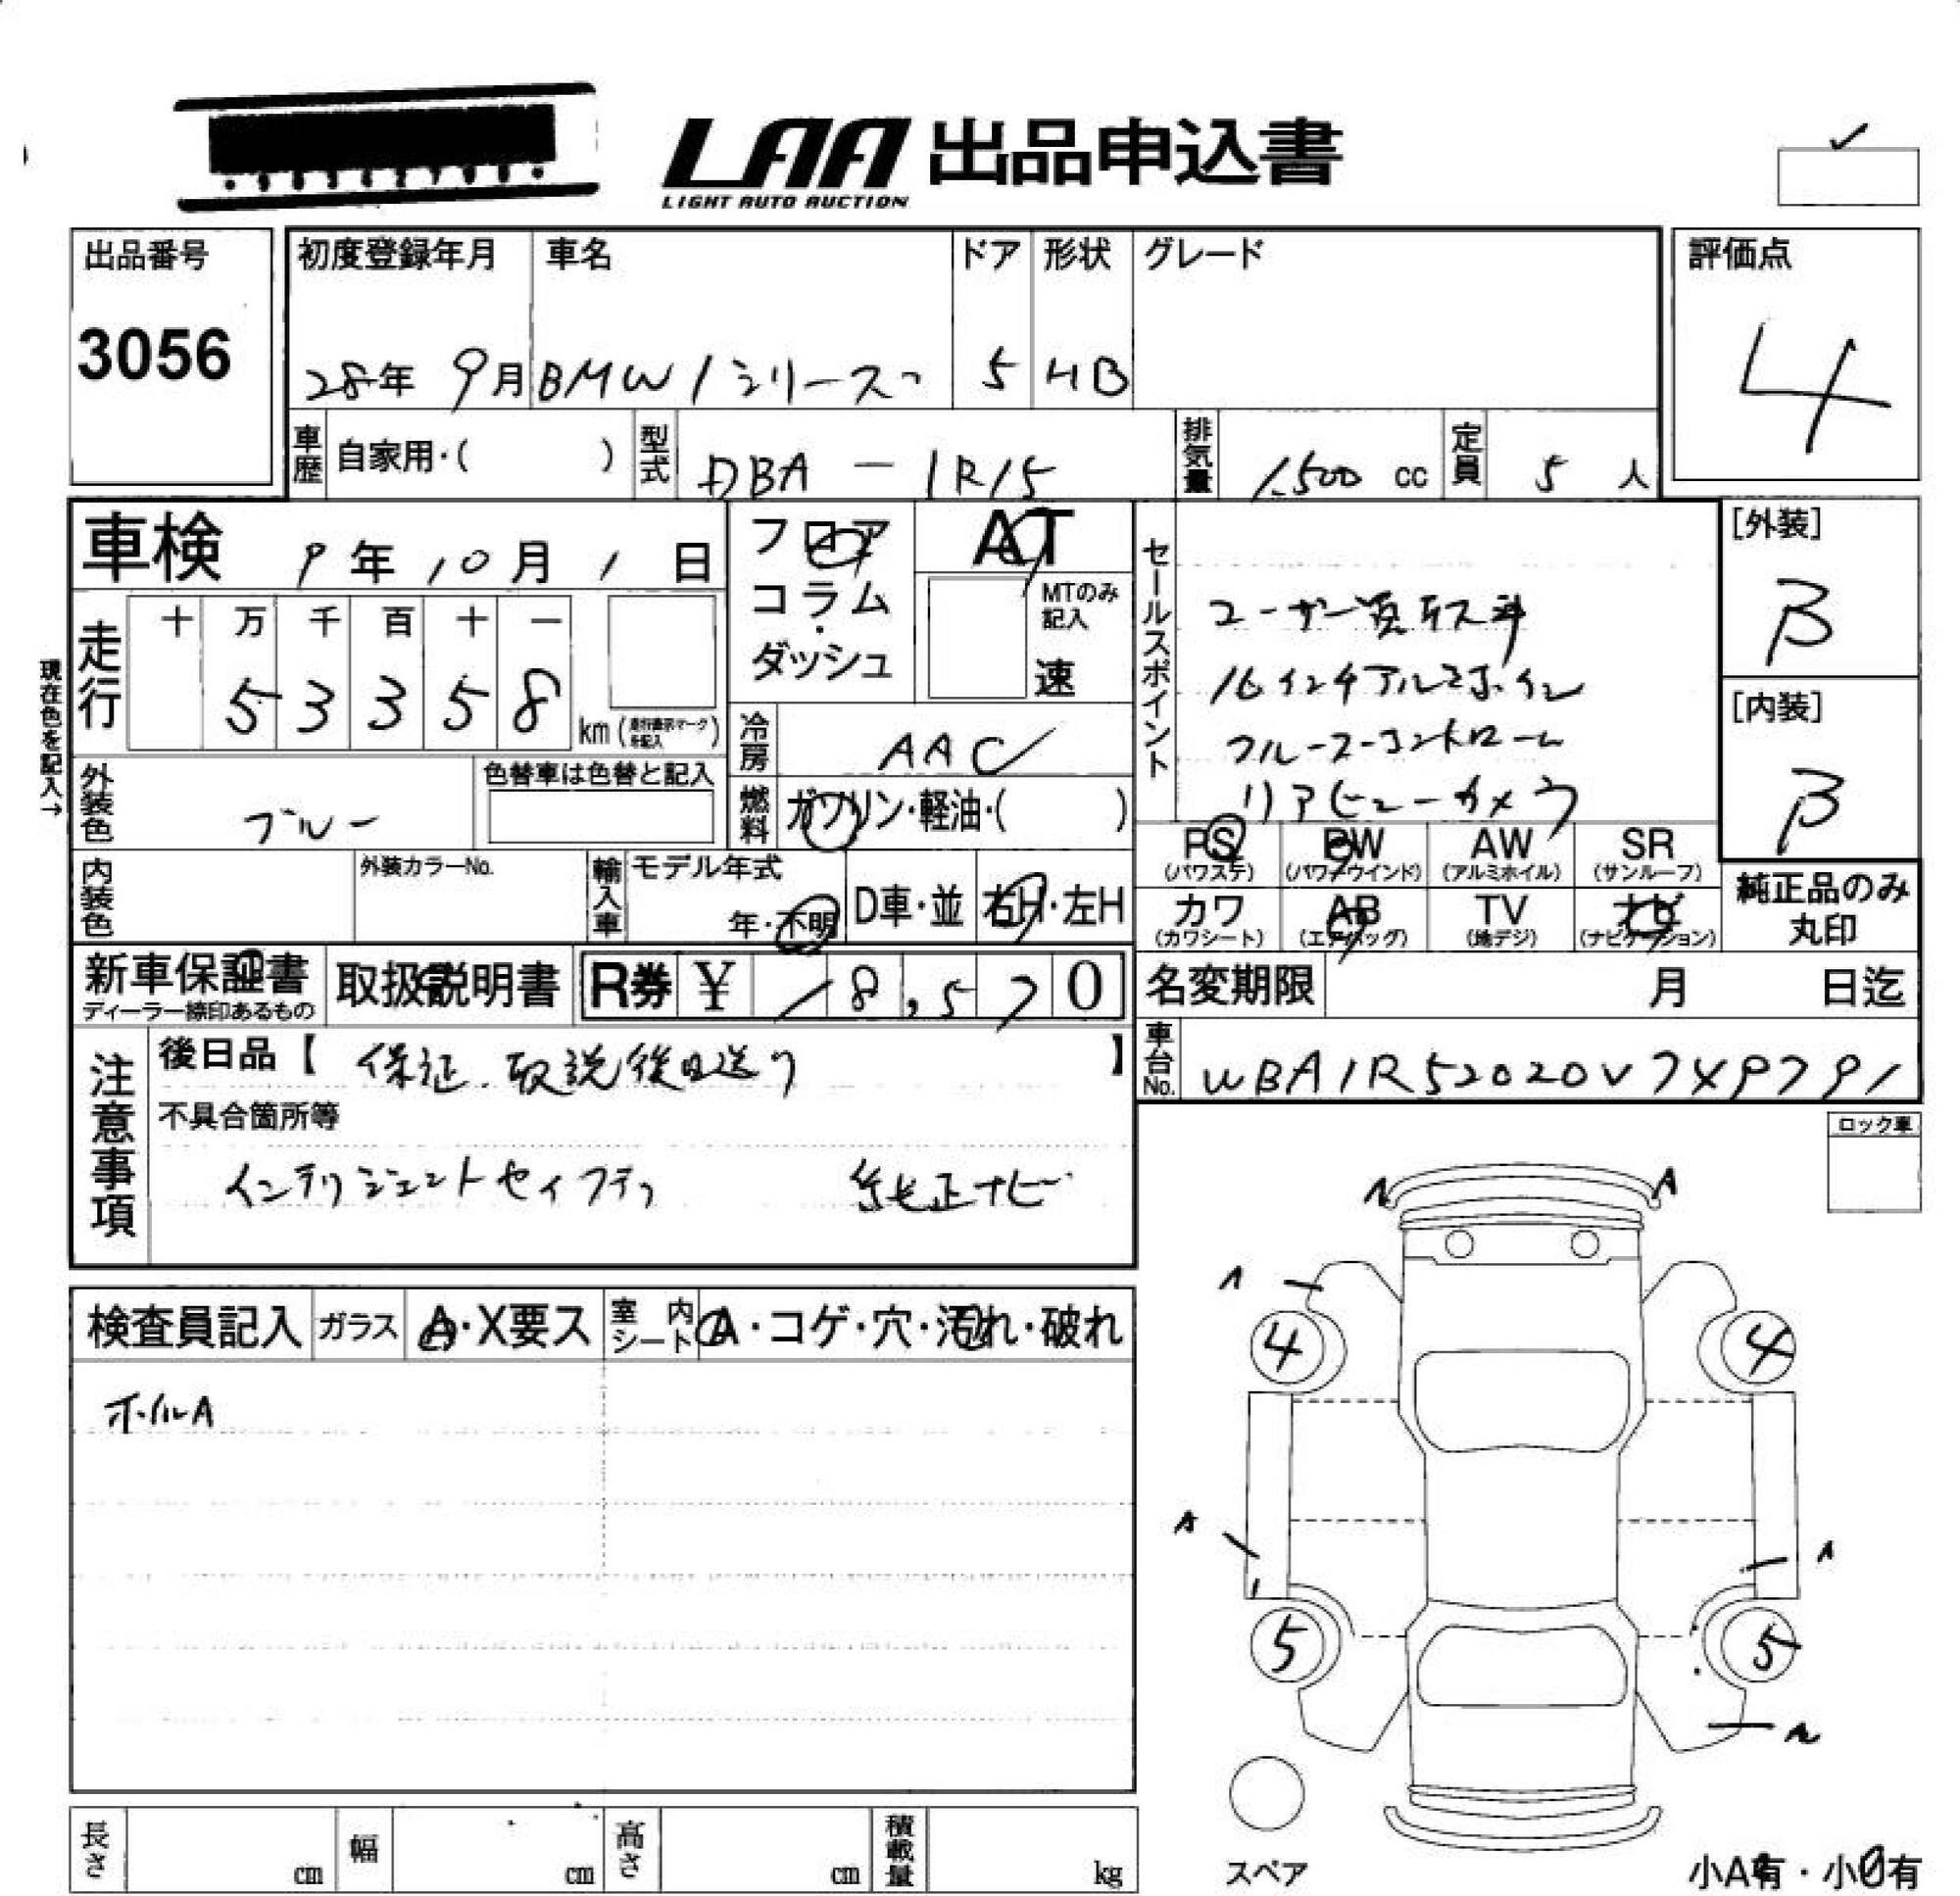 LAA 出品申込書
LIGHT AUTO AUCTION
出品番号
3056
初度登録年月
28年 9月
車名
BMW 1シリーズ
ドア
5
形状
HB
グレード
評価点
4
車歴 自家用・( )
型式 DBA - 1R15
排気量 1,500 cc
定員 5 人
車検 9年 10月 1日
フロア
コラム・
ダッシュ
AT
MTのみ記入
速
走行
十 万 千 百 十 一
5 3 3 5 8
km (走行表示マークを記入)
現在色を記入→
冷房 AAC
外装色 ブルー
色替車は色替と記入
燃料 ガソリン・軽油・( )
内装色
外装カラーNo.
輸入車
モデル年式
年・不明
D車・並
右H・左H
セールスポイント
ユーザー買取ス車
16インチアルミホイル
クルーズコントロール
リアビューカメラ
[外装]
B
[内装]
B
PS (パワステ)
PW (パワーウインド)
AW (アルミホイル)
SR (サンルーフ)
カワ (カワシート)
AB (エアバッグ)
TV (地デジ)
ナビ (ナビゲーション)
純正品のみ
丸印
新車保証書
ディーラー捺印あるもの
取扱説明書
R券 ¥ 18,570
名変期限 月 日迄
車台No. WBA1R52020V7X9791
注意事項
後日品【 保証.取説後日送り 】
不具合箇所等
インテリジェントセイフティ 純正ナビ
ロック車
検査員記入
ガラス A・X要ス
室内シート A・コゲ・穴・汚れ・破れ
ホイルA
A A
A
4 4
A A
5 5
A
スペア
小A有・小U有
長さ cm
幅 cm
高さ cm
積載量 kg